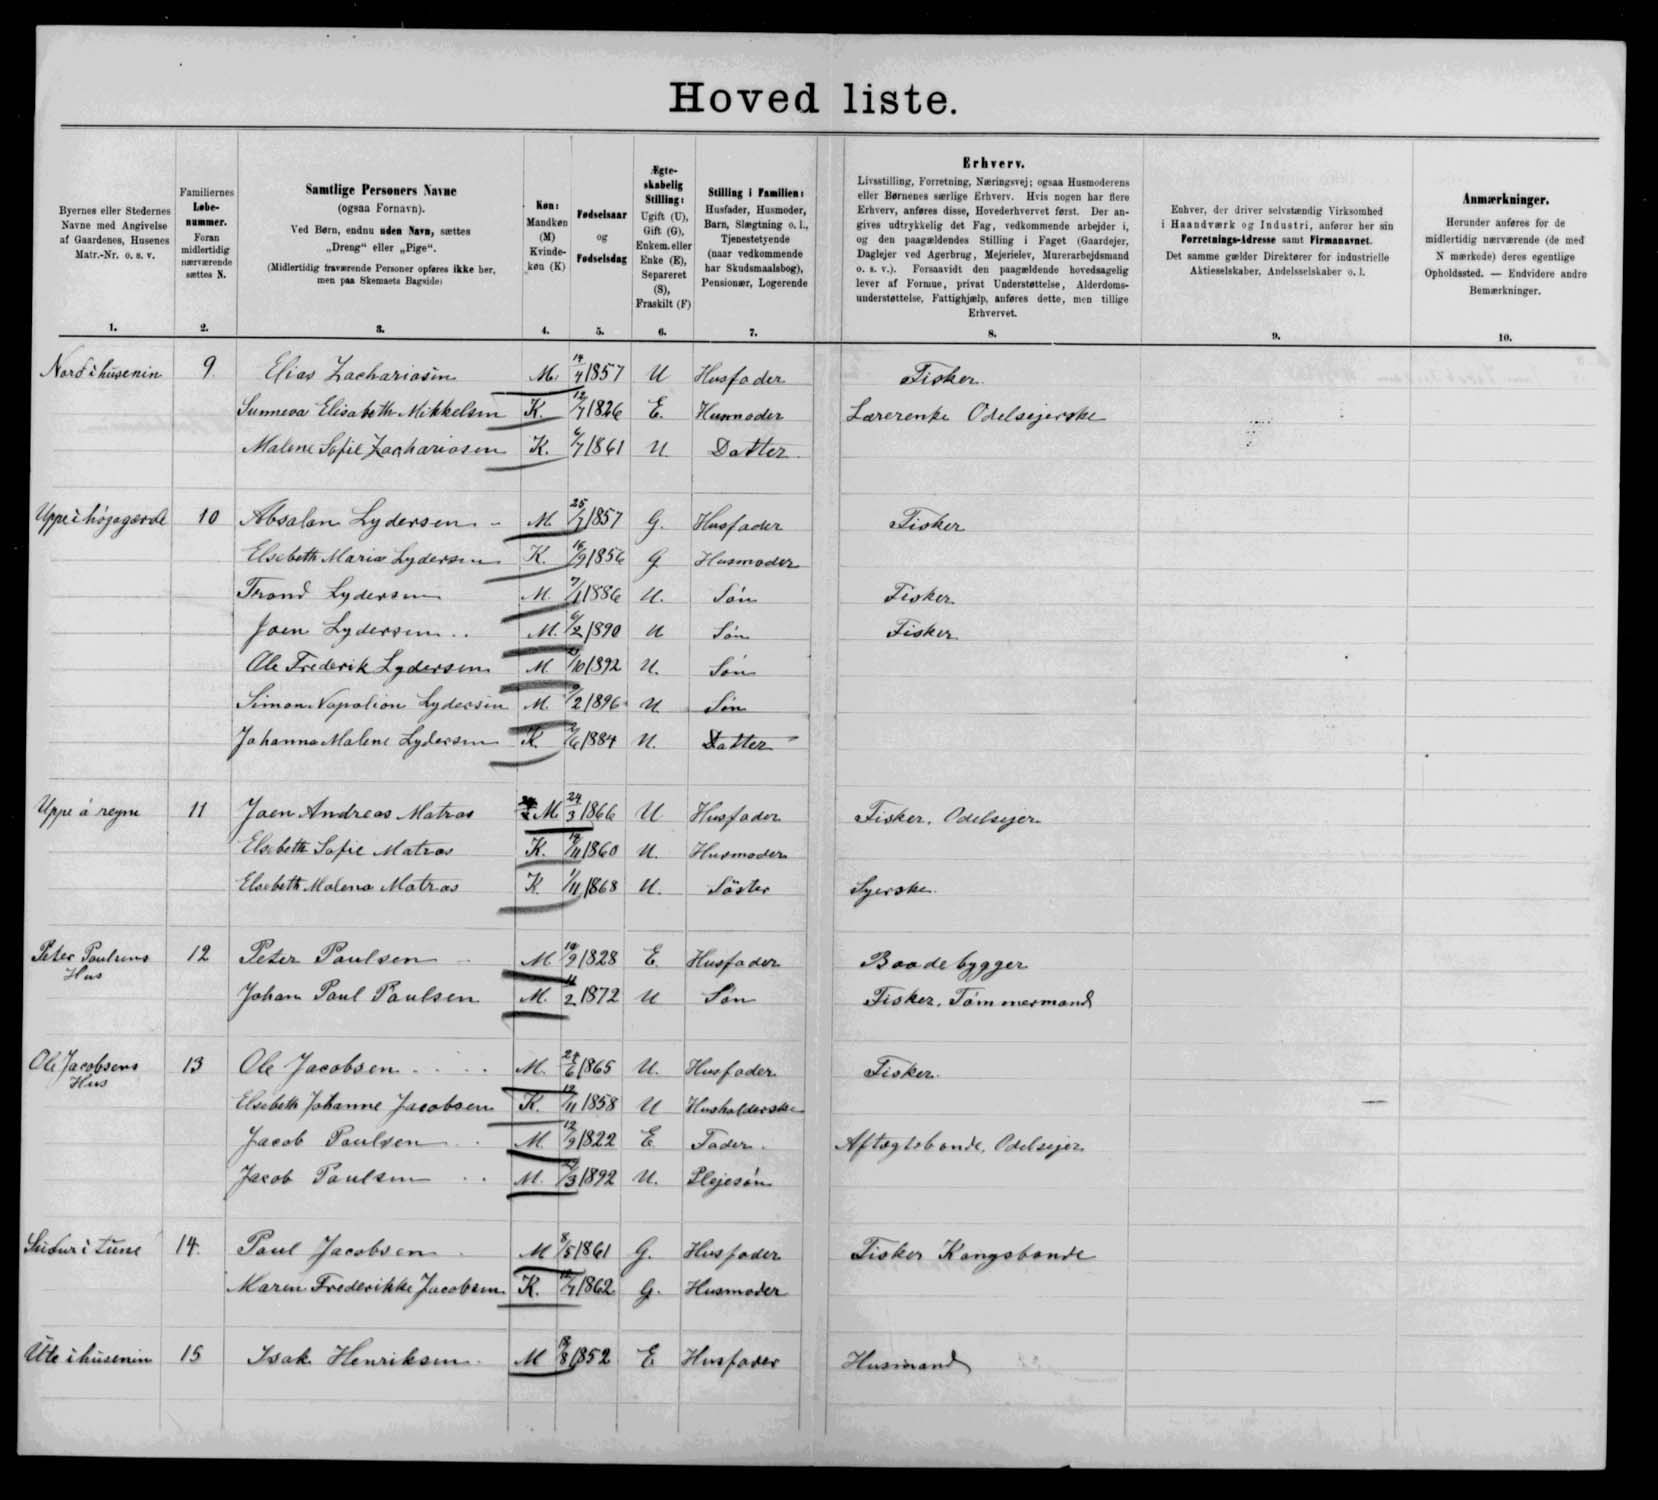 Hoved liste.
Byernes eller Stedernes
Navne med Angivelse
af Gaardenes, Husenes
Matr.-Nr. o. s. v.
1.
Familiernes
Løbe-
nummer.
Foran
midlertidig
nærværende
sættes N.
2.
Samtlige Personers Navne
(ogsaa Fornavn).
Ved Børn, endnu uden Navn, sættes
„Dreng“ eller „Pige“.
(Midlertidig fraværende Personer opføres ikke her,
men paa Skemaets Bagside)
3.
Køn:
Mandkøn
(M)
Kvinde-
køn (K)
4.
Fødselsaar
og
Fødselsdag
5.
Ægte-
skabelig
Stilling:
Ugift (U),
Gift (G),
Enkem. eller
Enke (E),
Separeret
(S),
Fraskilt (F)
6.
Stilling i Familien:
Husfader, Husmoder,
Barn, Slægtning o. l.,
Tjenestetyende
(naar vedkommende
har Skudsmaalsbog),
Pensionær, Logerende
7.
Erhverv.
Livsstilling, Forretning, Næringsvej; ogsaa Husmoderens
eller Børnenes særlige Erhverv. Hvis nogen har flere
Erhverv, anføres disse, Hovederhvervet først. Der an-
gives udtrykkelig det Fag, vedkommende arbejder i,
og den paagældendes Stilling i Faget (Gaardejer,
Daglejer ved Agerbrug, Mejerielev, Murerarbejdsmand
o. s. v.). Forsaavidt den paagældende hovedsagelig
lever af Formue, privat Understøttelse, Alderdoms-
understøttelse, Fattighjælp, anføres dette, men tillige
Erhvervet.
8.
Enhver, der driver selvstændig Virksomhed
i Haandværk og Industri, anfører her sin
Forretnings-Adresse samt Firmanavnet.
Det samme gælder Direktører for industrielle
Aktieselskaber, Andelsselskaber o. l.
9.
Anmærkninger.
Herunder anføres for de
midlertidig nærværende (de med
N mærkede) deres egentlige
Opholdssted. — Endvidere andre
Bemærkninger.
10.
Nord i húsenin 9 Elias Zachariasen M. 14/4 1857 U Husfader Fisker
Sunneva Elisabeth Mikkelsen K. 12/7 1826 E. Husmoder Lærerenke Odelsejerske
Malene Sofie Zachariasen K. 6/7 1861 U Datter
Uppe i høgagærde 10 Absalon Lydersen M 25/7 1857 G. Husfader Fisker
Elsebeth Maria Lydersen K. 16/9 1856 G Husmoder
Trond Lydersen M. 7/1 1886 U. Søn Fisker
Joen Lydersen M. 6/2 1890 U Søn Fisker
Ole Frederik Lydersen M /10 1892 U. Søn
Simon Napolion Lydersen M. /2 1896 U Søn
Johanna Malene Lydersen K. /6 1884 U. Datter
Uppe á reyni 11 Joen Andreas Matras M 24/3 1866 U Husfader Fisker, Odelsejer
Elsebeth Sofie Matras K. /11 1860 U. Husmoder
Elsebeth Malena Matras K 1/11 1868 U. Søster Syerske
Peter Paulsens 12 Peter Paulsen M 19/9 1828 E. Husfader Baadebygger
Hus
Johan Paul Paulsen M. 11/2 1872 U Søn Fisker, Tømmermand
Ole Jacobsens 13 Ole Jacobsen M. 24/6 1865 U. Husfader Fisker
Hus
Elsebeth Johanne Jacobsen K. 12/11 1858 U Husholderske
Jacob Paulsen M 12/9 1822 E Fader Aftægtsbonde, Odelsejer
Jacob Paulsen M. /3 1892 U. Plejesøn
Suður i túni 14. Paul Jacobsen M 8/5 1861 G. Husfader Fisker Kongsbonde
Maren Frederikke Jacobsen K. 12/7 1862 G. Husmoder
Úte i húsenin 15 Isak Henriksen M 18/8 1852 E Husfader Husmand